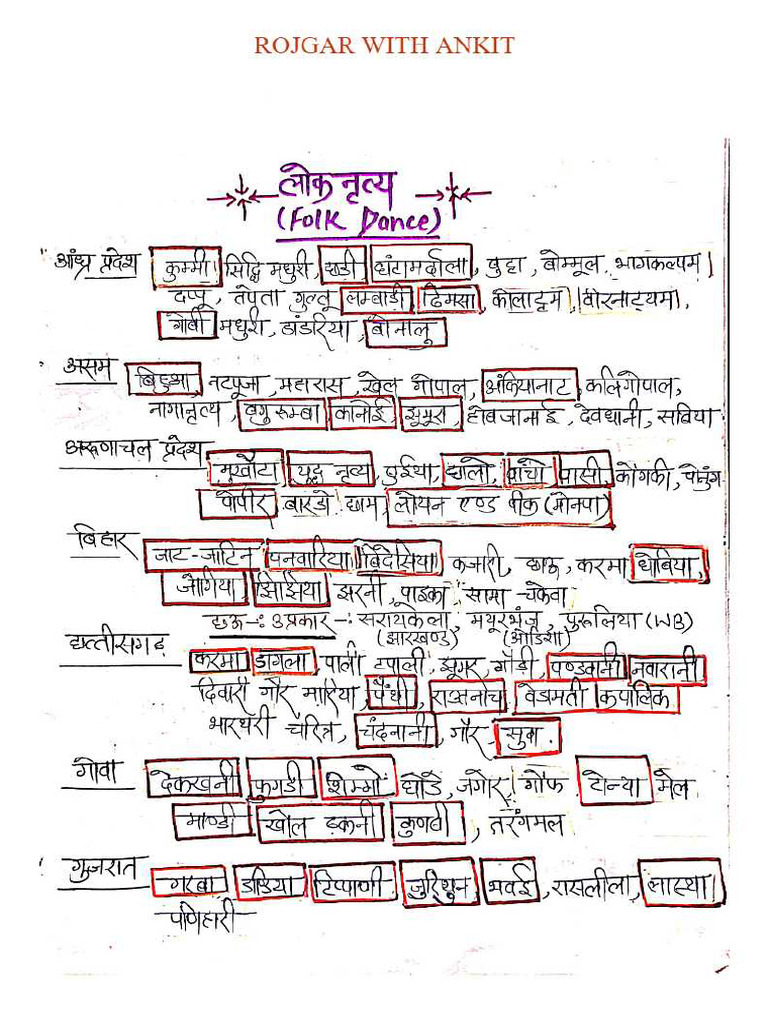 ROJGAR WITH ANKIT
लोक नृत्य
(Folk Dance)
आंध्र प्रदेश कुम्मी सिद्धि मधुरी, छड़ी घंटामर्दाला, बुट्टा, बोम्मूल, भागकल्पम
दप्पू, तपेता गुल्लू लम्बाडी ढिमसा, कोलाट्टम, वीरनाट्यम,
गोबी मधुरी, डांडरिया, बोनालू
असम बिहुआ, नटपूजा, महारास, खेल गोपाल, अंकियानाट, कलिगोपाल,
नागानृत्य, बागुरूम्बा कानोई, झूमूरा, होबजानाई, देवधानी, सत्रिया
अरूणाचल प्रदेश
मुखौटा, युद्ध नृत्य, पुईया, छालो, पांचो, पासी, कोंगकी,
पोपीर, बारडो छाम, लोयन एण्ड पीक (मोनपा)
बिहार जाट-जाटिन पनवारिया बिदेसिया कजारी, छाऊ, करमा धोबिया,
जोगिया झिझिया झरनी, पाइका, सामा-चकेवा
छऊ -: 3 प्रकार -: सरायकेला, मयूरभंज, पुरूलिया (WB)
(झारखण्ड) (ओडिशा)
छत्तीसगढ़
करमा डागला, पाली टपाली, झूमर, गोंडी, पण्डवानी नवारानी
दिवारी गौर मारिया, पंथी, राऊतनाच, वेदमती कपालिक
भारथरी चरित्र, चंदनानी, गौर, सुवा.
गोवा देकखनी फुगडी शिग्मो घोडे, जगोर, गौफ, टोन्या मेल
माण्डी खोल ढकनी कुणबी, तरंगमल
गुजरात गरबा डांडिया टिप्पाणी जुरियुन भवई, रासलीला, लास्या
पणिहारी